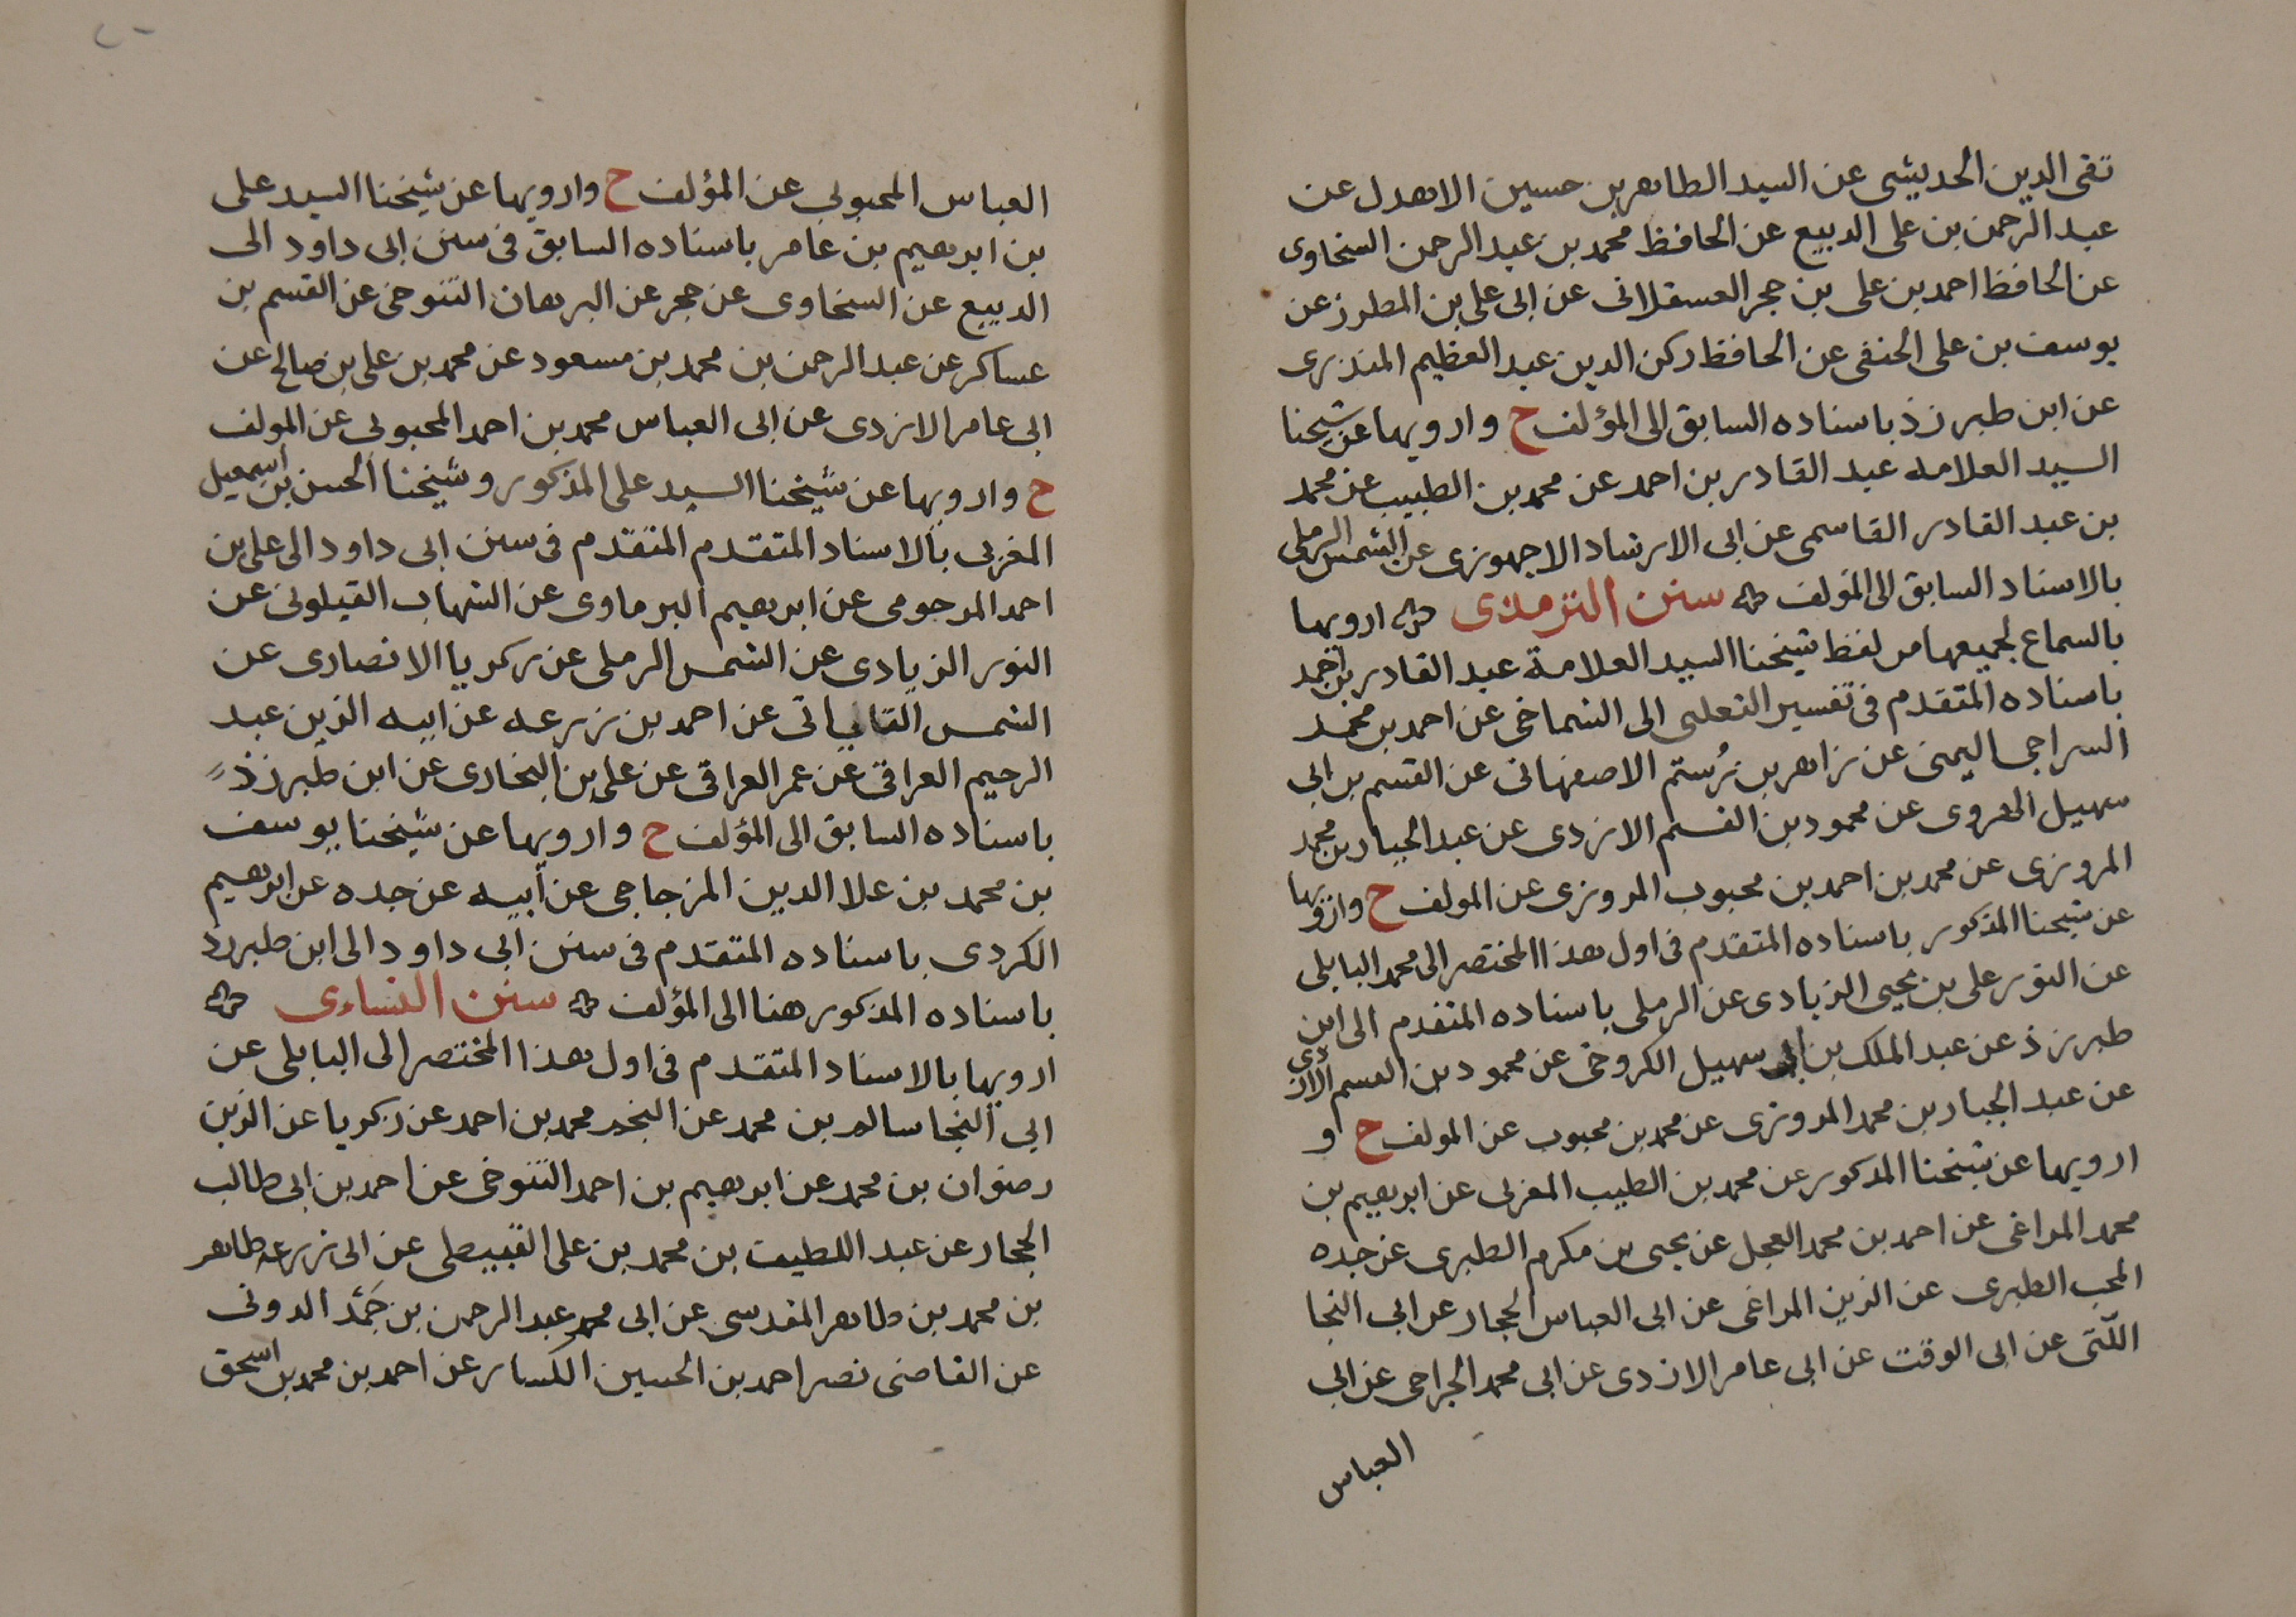 تقى الدين الحديثى عن السيد الطاهر بن حسين الاهدل عن
عبد الرحمن بن على الديبع عن الحافظ محمد بن عبد الرحمن السخاوى
عن الحافظ احمد بن على بن حجر العسقلانى عن ابى على بن المطرز عن
يوسف بن على الحنفى عن الحافظ ركن الدين عبد العظيم المنذرى
عن ابن طبرزذ باسناده السابق الى المؤلف ح وارويها عن شيخنا
السيد العلامه عبد القادر بن احمد عن محمد بن الطيب عن محمد
بن عبد القادر القاسمى عن ابى الارشاد الاجهورى عن الشمس الرملى
بالاسناد السابق الى المؤلف سنن الترمذى ارويها
بالسماع لجميعها من لفظ شيخنا السيد العلامة عبد القادر بن احمد
باسناده المتقدم فى تفسير الثعلبى الى الشماخى عن احمد بن محمد
السراجى اليمنى عن زاهر بن رُستم الاصفهانى عن القسم بن ابى
سهيل الهروى عن محمود بن القسم الازدى عن عبد الجبار بن محمد
المروزى عن محمد بن احمد بن محبوب المروزى عن المولف ح وارويها
عن شيخنا المذكور باسناده المتقدم فى اول هذا المختصر الى محمد البابلى
عن النور على بن يحيى الزيادى عن الرملى باسناده المتقدم الى ابن
طبرزذ عن عبد الملك بن ابى سهيل الكروخى عن محمود بن القسم الازدى
عن عبد الجبار بن محمد المروزى عن محمد بن محبوب عن المولف ح و
ارويها عن شيخنا المذكور عن محمد بن الطيب المغربى عن ابرهيم بن
محمد المراغى عن احمد بن محمد العجل عن يحيى بن مكرم الطبرى عن جده
المحب الطبرى عن الزين المراغى عن ابى العباس الحجار عن ابى النجا
اللّتى عن ابى الوقت عن ابى عامر الازدى عن ابى محمد الجراحى عن ابى
العباس
العباس المحبوبى عن المؤلف ح وارويها عن شيخنا السيد على
بن ابرهيم بن عامر باسناده السابق فى سنن ابى داود الى
الديبع عن السخاوى عن حجر عن البرهان التنوخى عن القسم بن
عساكر عن عبد الرحمن بن محمد بن مسعود عن محمد بن على بن صالح عن
ابى عامر الازدى عن ابى العباس محمد بن احمد المحبوبى عن المولف
ح وارويها عن شيخنا السيد على المذكور وشيخنا الحسن بن اسمعيل
المغربى بالاسناد المتقدم المتقدم فى سنن ابى داود الى على بن
احمد المرحومى عن ابرهيم البرماوى عن الشهاب القيلوبى عن
النور الزيادى عن الشمس الرملى عن زكريا الانصارى عن
الشمس القاياتى عن احمد بن زرعه عن ابيه الزين عبد
الرحيم العراقى عن عمر العراقى عن على بن البخارى عن ابن طبرزذ
باسناده السابق الى المؤلف ح وارويها عن شيخنا يوسف
بن محمد بن علا الدين المزجاجى عن أبيه عن جده عن ابرهيم
الكردى باسناده المتقدم فى سنن ابى داود الى ابن طبرزذ
باسناده المذكور هنا الى المؤلف سنن النساءى
ارويها بالاسناد المتقدم فى اول هذا المختصر الى البابلى عن
ابي النجا سالم بن محمد عن النجم محمد بن احمد عن زكريا عن الزين
رضوان بن محمد عن ابرهيم بن احمد التنوخى عن احمد بن ابى طالب
الحجار عن عبد اللطيف بن محمد بن على القبيطى عن ابى زرعه طاهر
بن محمد بن طاهر المقدسى عن ابى محمد عبد الرحمن بن حَمْد الدونى
عن القاضى نصر احمد بن الحسين الكسار عن احمد بن محمد بن اسحق